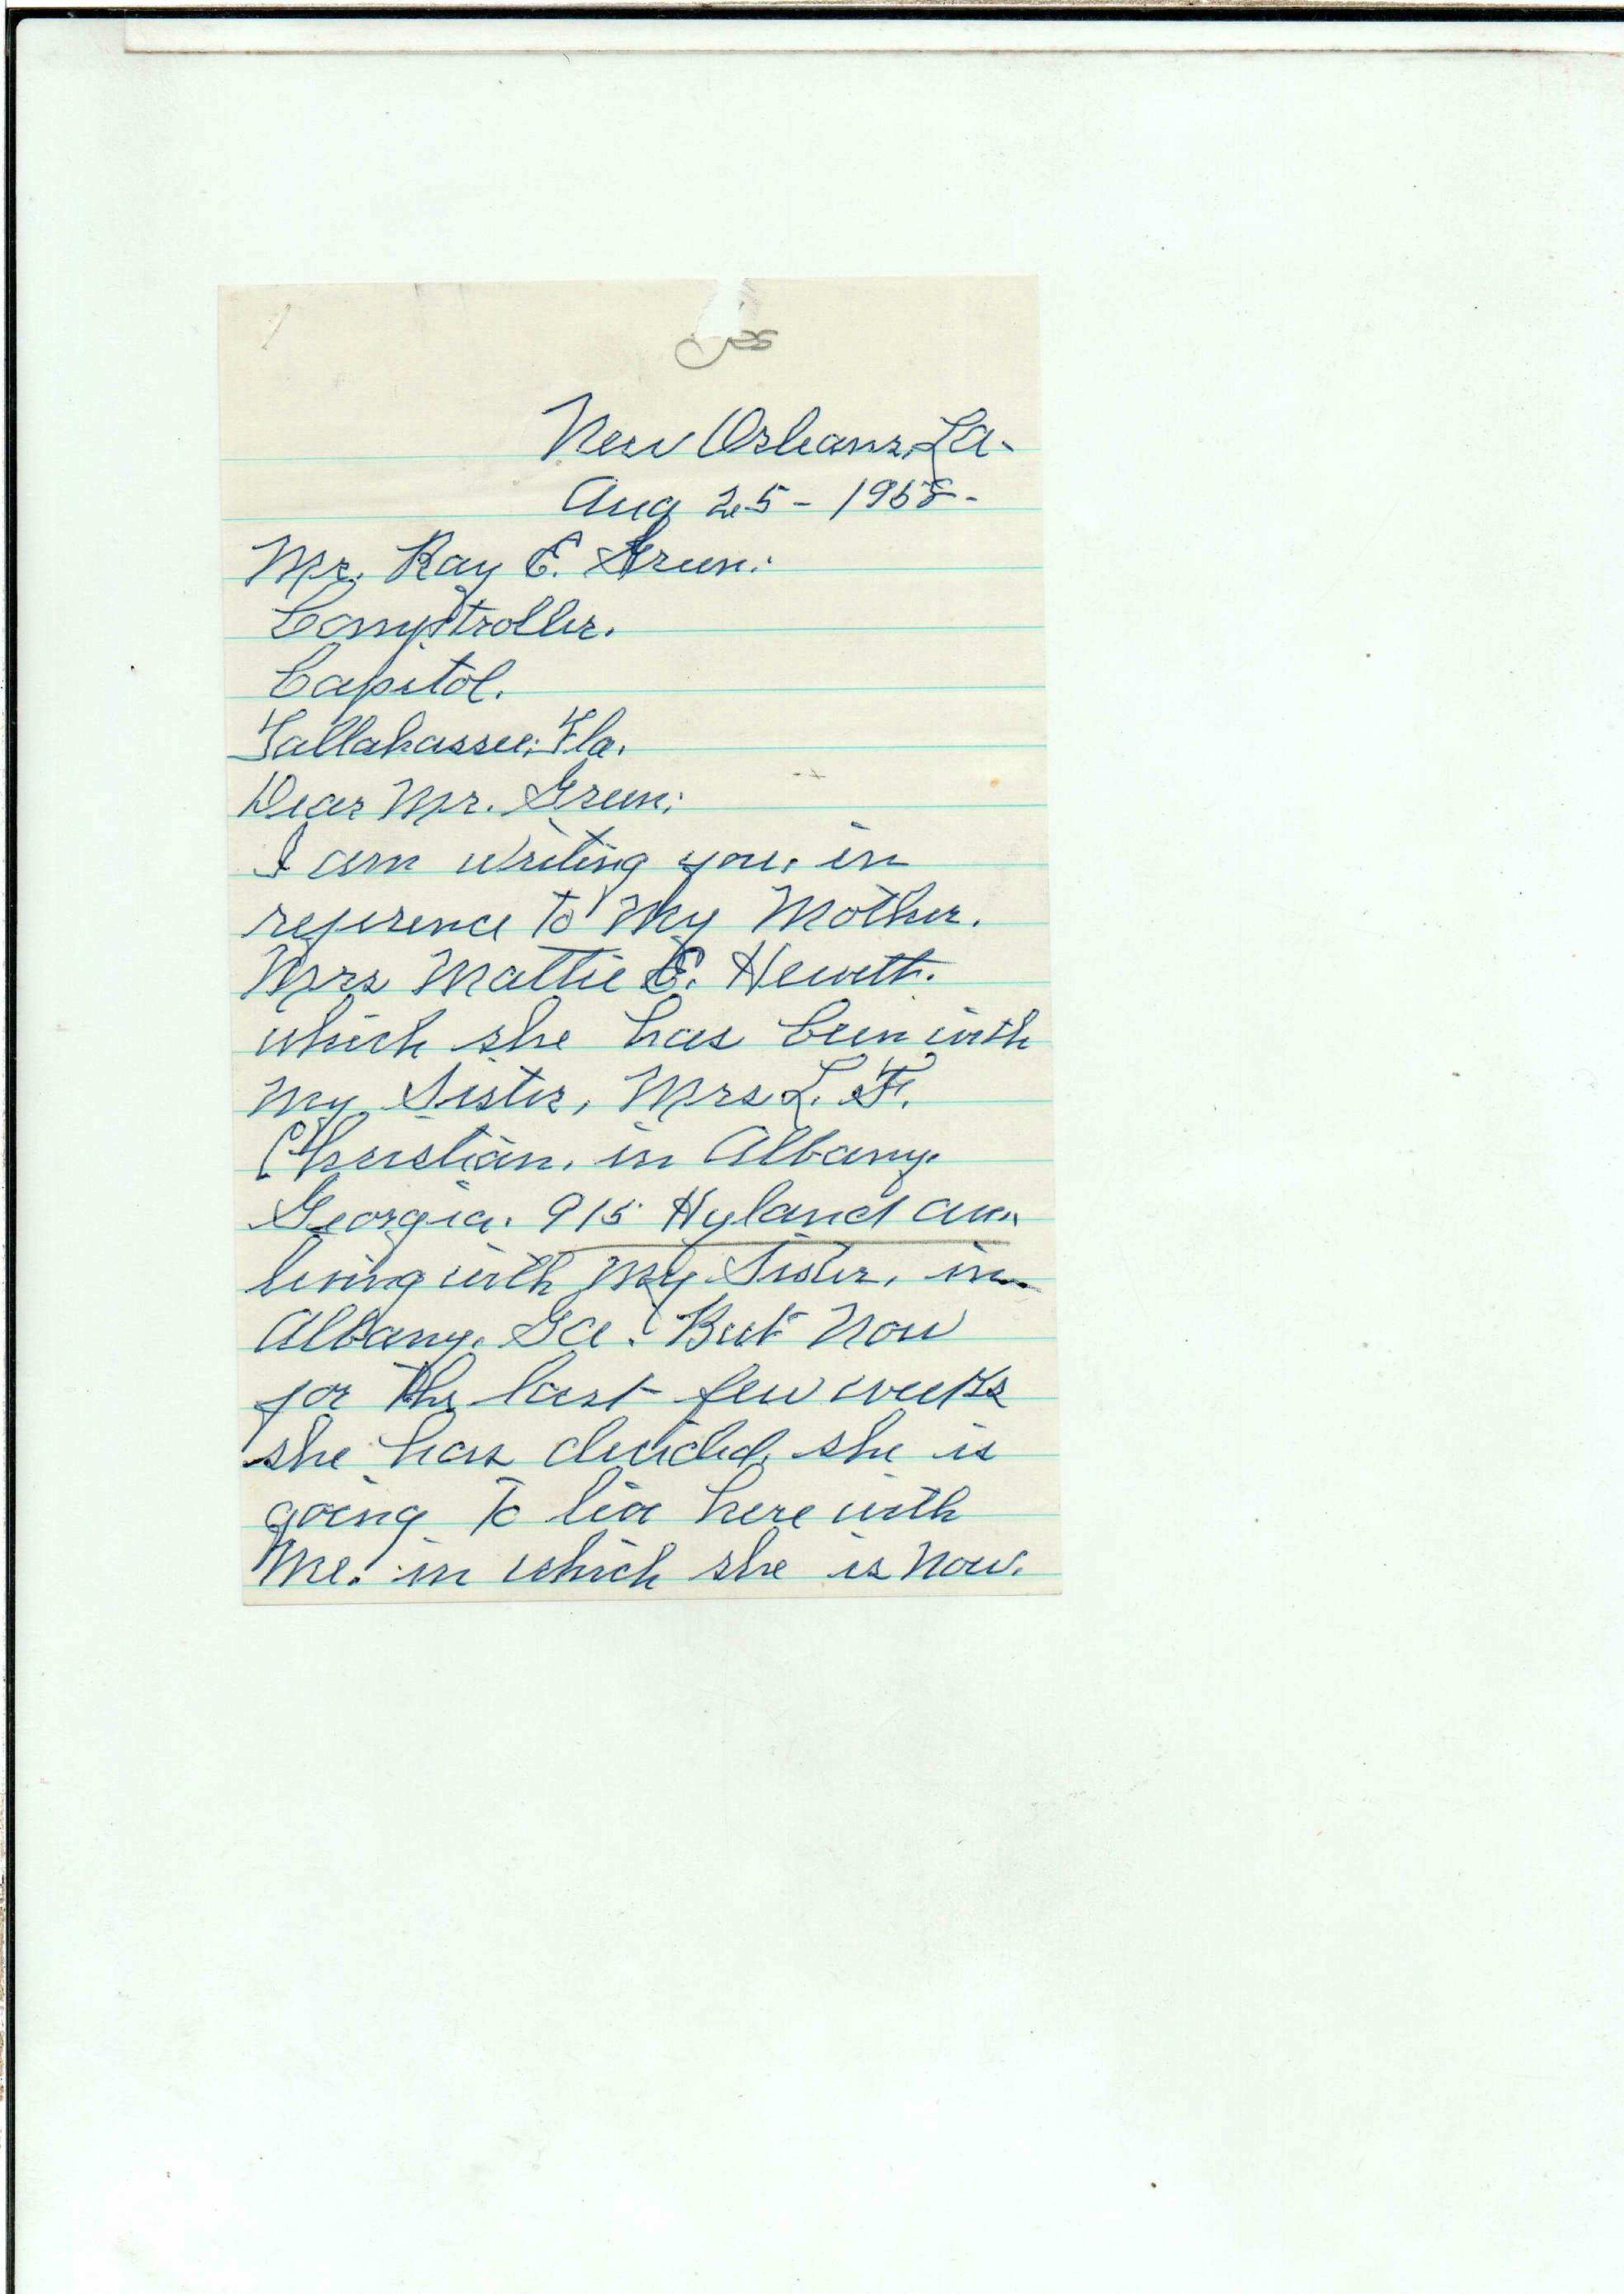 New Orleans, La-
Aug 25 - 1958-
Mr. Ray E. Green:
Comptroller.
Capitol.
Tallahassee, Fla.
Dear Mr. Green;
I am writing you, in
reference to My Mother.
Mrs Mattie E. Hewett.
which she has been with
my Sister, Mrs L. F.
Christian, in Albany.
Georgia. 915 Hyland Ave,
living with My Sister, in
Albany, Ga. But Now
for the last few weeks
she has decided, she is
going to live here with
Me. in which she is Now.